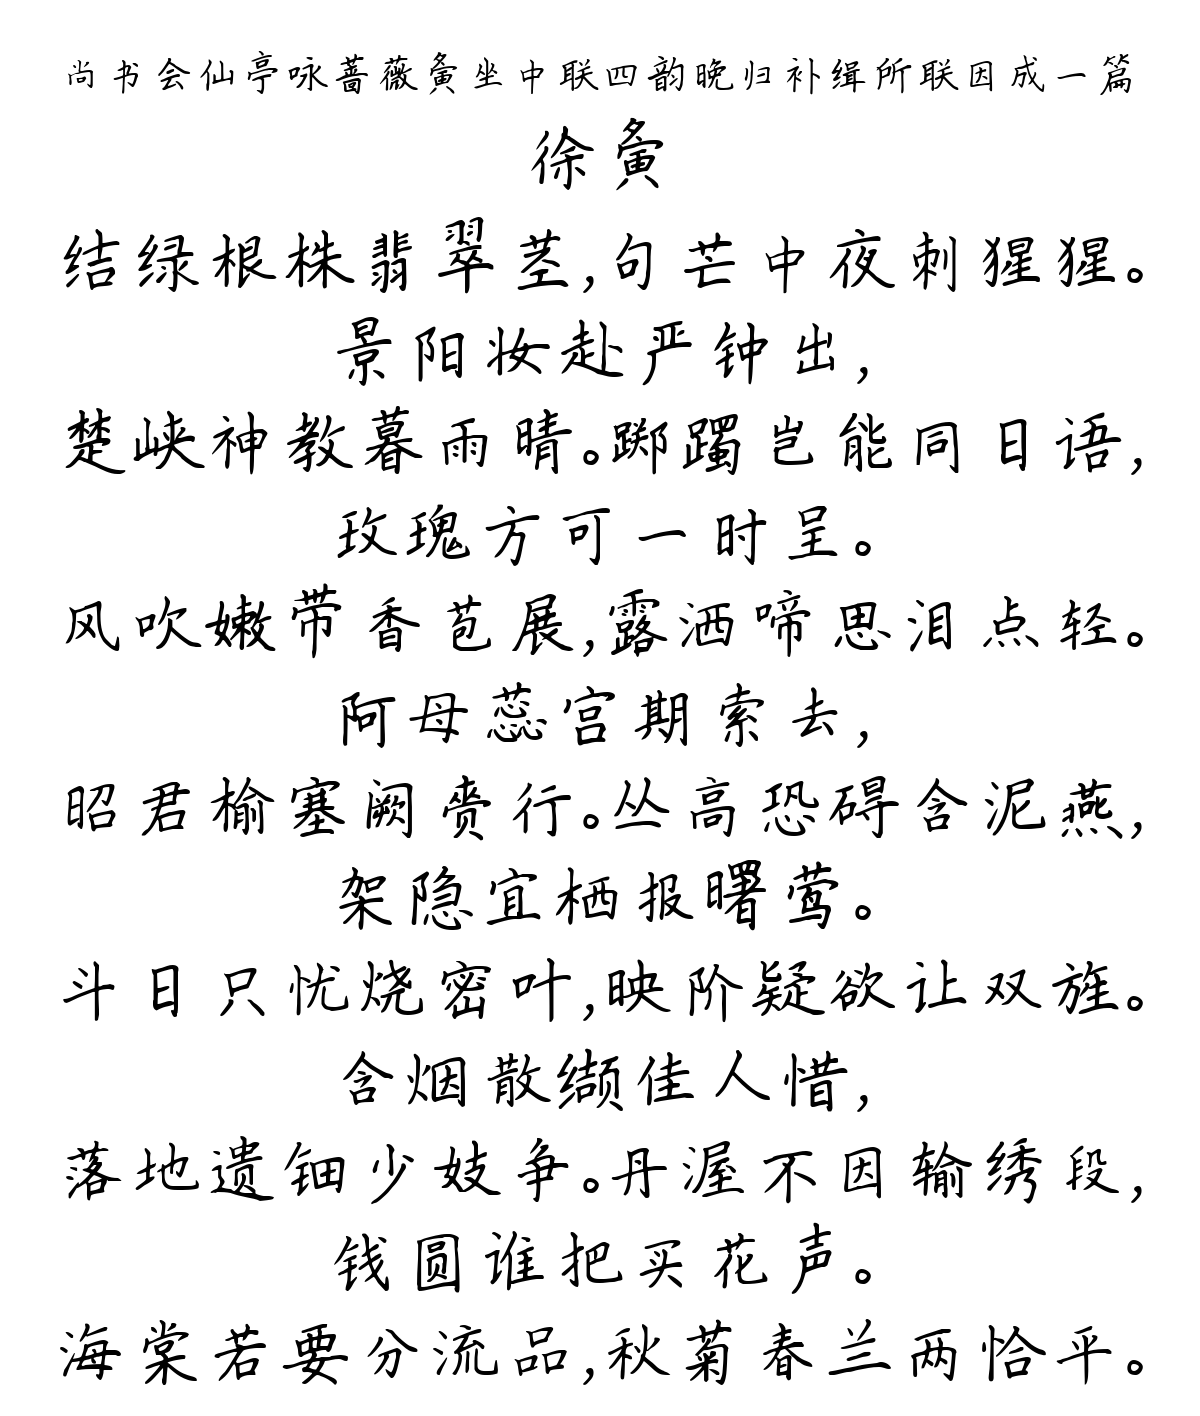 尚书会仙亭咏蔷薇夤坐中联四韵晚归补缉所联因成一篇
徐夤
结绿根株翡翠茎,句芒中夜刺猩猩。
景阳妆赴严钟出,
楚峡神教暮雨晴。踯躅岂能同日语,
玫瑰方可一时呈。
风吹嫩带香苞展,露洒啼思泪点轻。
阿母蕊宫期索去,
昭君榆塞阙赍行。丛高恐碍含泥燕,
架隐宜栖报曙莺。
斗日只忧烧密叶,映阶疑欲让双旌。
含烟散缬佳人惜,
落地遗钿少妓争。丹渥不因输绣段,
钱圆谁把买花声。
海棠若要分流品,秋菊春兰两恰平。